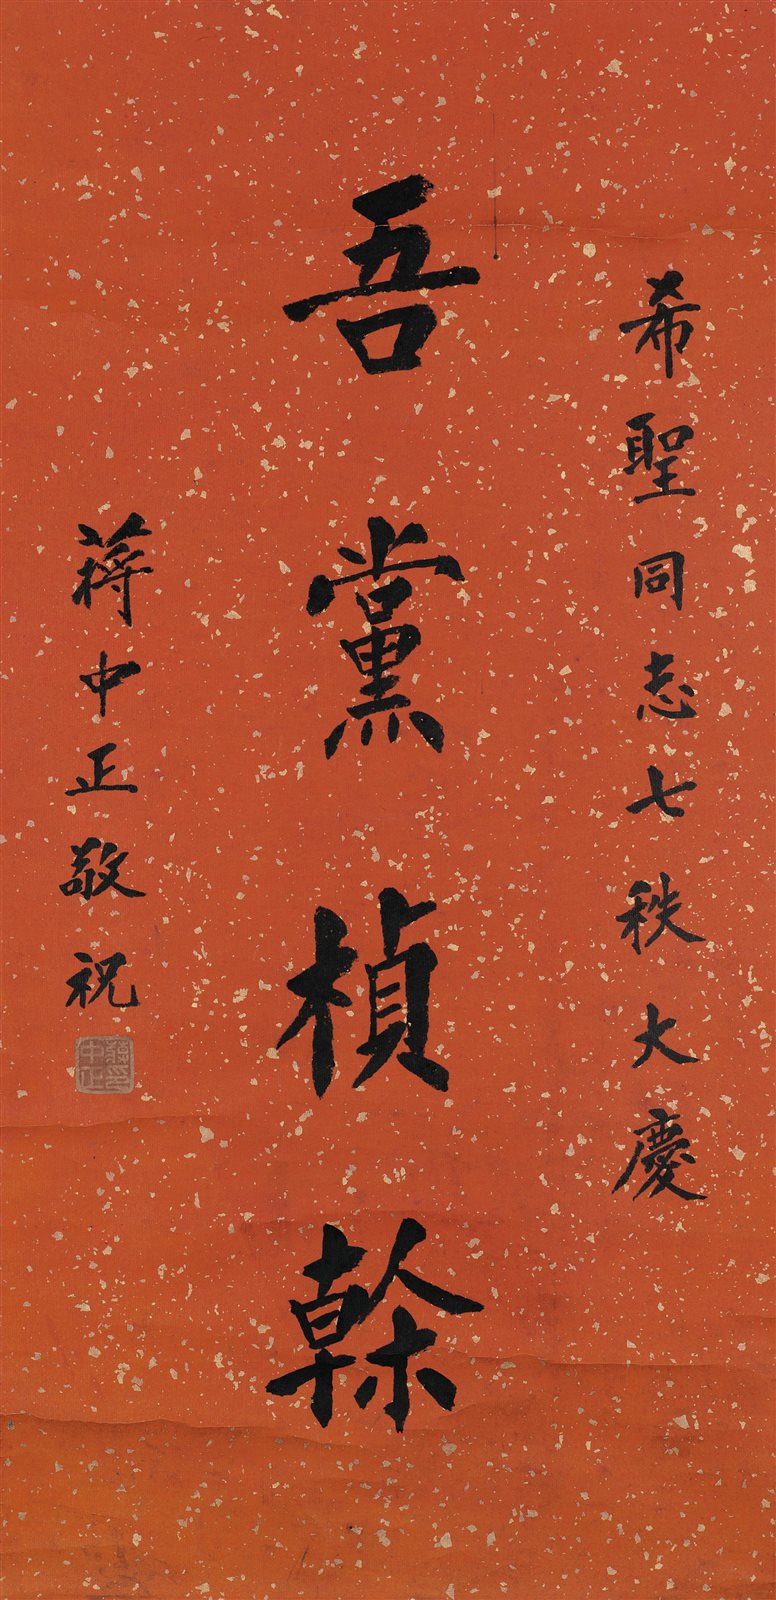 希聖同志七秩大慶
吾黨楨榦
蔣中正敬祝